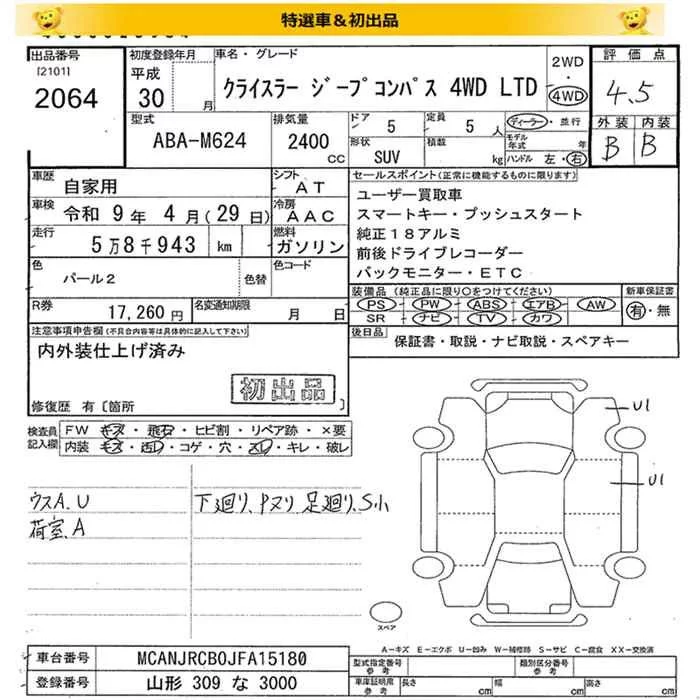 特選車＆初出品
出品番号
[2101]
2064
初度登録年月
平成
30 月
車名・グレード
クライスラー ジープコンパス 4WD LTD
2WD
・
4WD
評価点
4.5
外装 内装
B B
型式
ABA-M624
排気量
2400
CC
ドア 5
定員 5 人
形状
SUV
積載
kg
ディーラー・並行
モデル年式 年
ハンドル 左・右
車歴
自家用
シフト
AT
車検
令和 9年 4月(29日)
冷房
AAC
走行
5万8千943 km
燃料
ガソリン
色
パール2
色替
色コード
R券
17,260円
名変通知期限
月 日
セールスポイント(正常に機能するものに限ります)
ユーザー買取車
スマートキー・プッシュスタート
純正18アルミ
前後ドライブレコーダー
バックモニター・ETC
装備品 (純正品に限り○をつけてください)
PS PW ABS エアB AW
SR ナビ TV カワ
新車保証書
有・無
後日品
保証書・取説・ナビ取説・スペアキー
注意事項申告欄(不具合内容等は具体的に記入して下さい)
内外装仕上げ済み
初出品
修復歴 有〔箇所
検査員記入欄
FW キズ・飛石・ヒビ割・リペア跡・×要
内装 キズ・凹・コゲ・穴・スレ・キレ・破レ
ウスA、U
荷室、A
下廻り、Pヌリ 足廻り、S小
U1
U1
スペア
A－キズ E－エクボ U－凹み W－補修跡 S－サビ C－腐食 XX－交換済
車台番号
MCANJRCB0JFA15180
登録番号
山形 309 な 3000
型式指定番号
参考
類別区分番号
参考
車庫証明用
参考
長さ cm
幅 cm
高さ cm